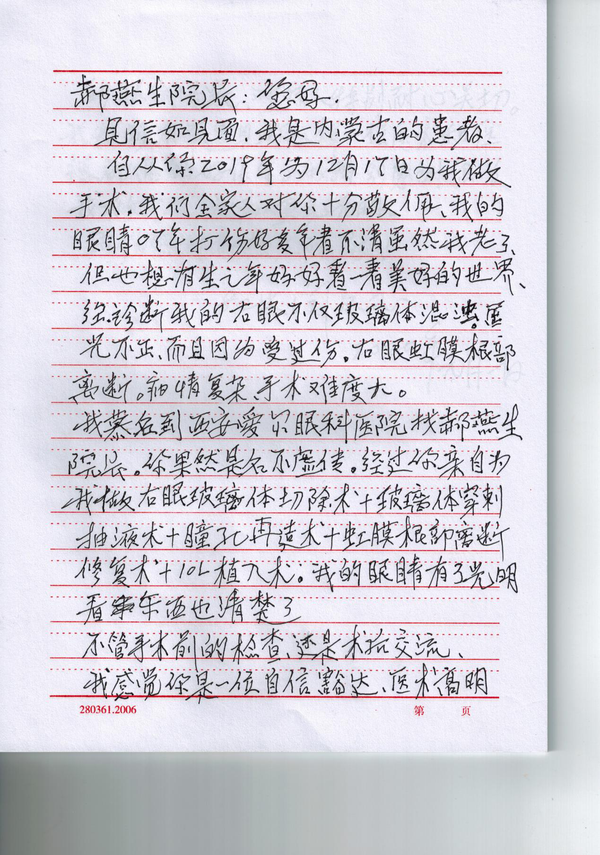 郝燕生院长：您好．
见信如见面，我是内蒙古的患者、
自从你2019年为12月17日为我做
手术，我们全家人对你十分敬佩、我的
眼睛07年打伤好多年看不清虽然我老了
但也想有生之年好好看一看美好的世界、
经诊断我的右眼不仅玻璃体混浊
光不出、而且因为受过伤。右眼虹膜根部
离断。病情复杂、手术难度大。
我慕名到西安爱尔眼科医院找郝燕生
院长。你果然是名不虚传。经过你亲自为
我做右眼玻璃体切除术+玻璃体穿刺
抽液术+瞳孔再造术+虹膜根部离断
修复术+IOL植入术。我的眼睛有了光明
看东西也清楚了
不管手术前的检查、还是术后交流、
我感觉你是一位自信豁达、医术高明
280361.2006
第 页